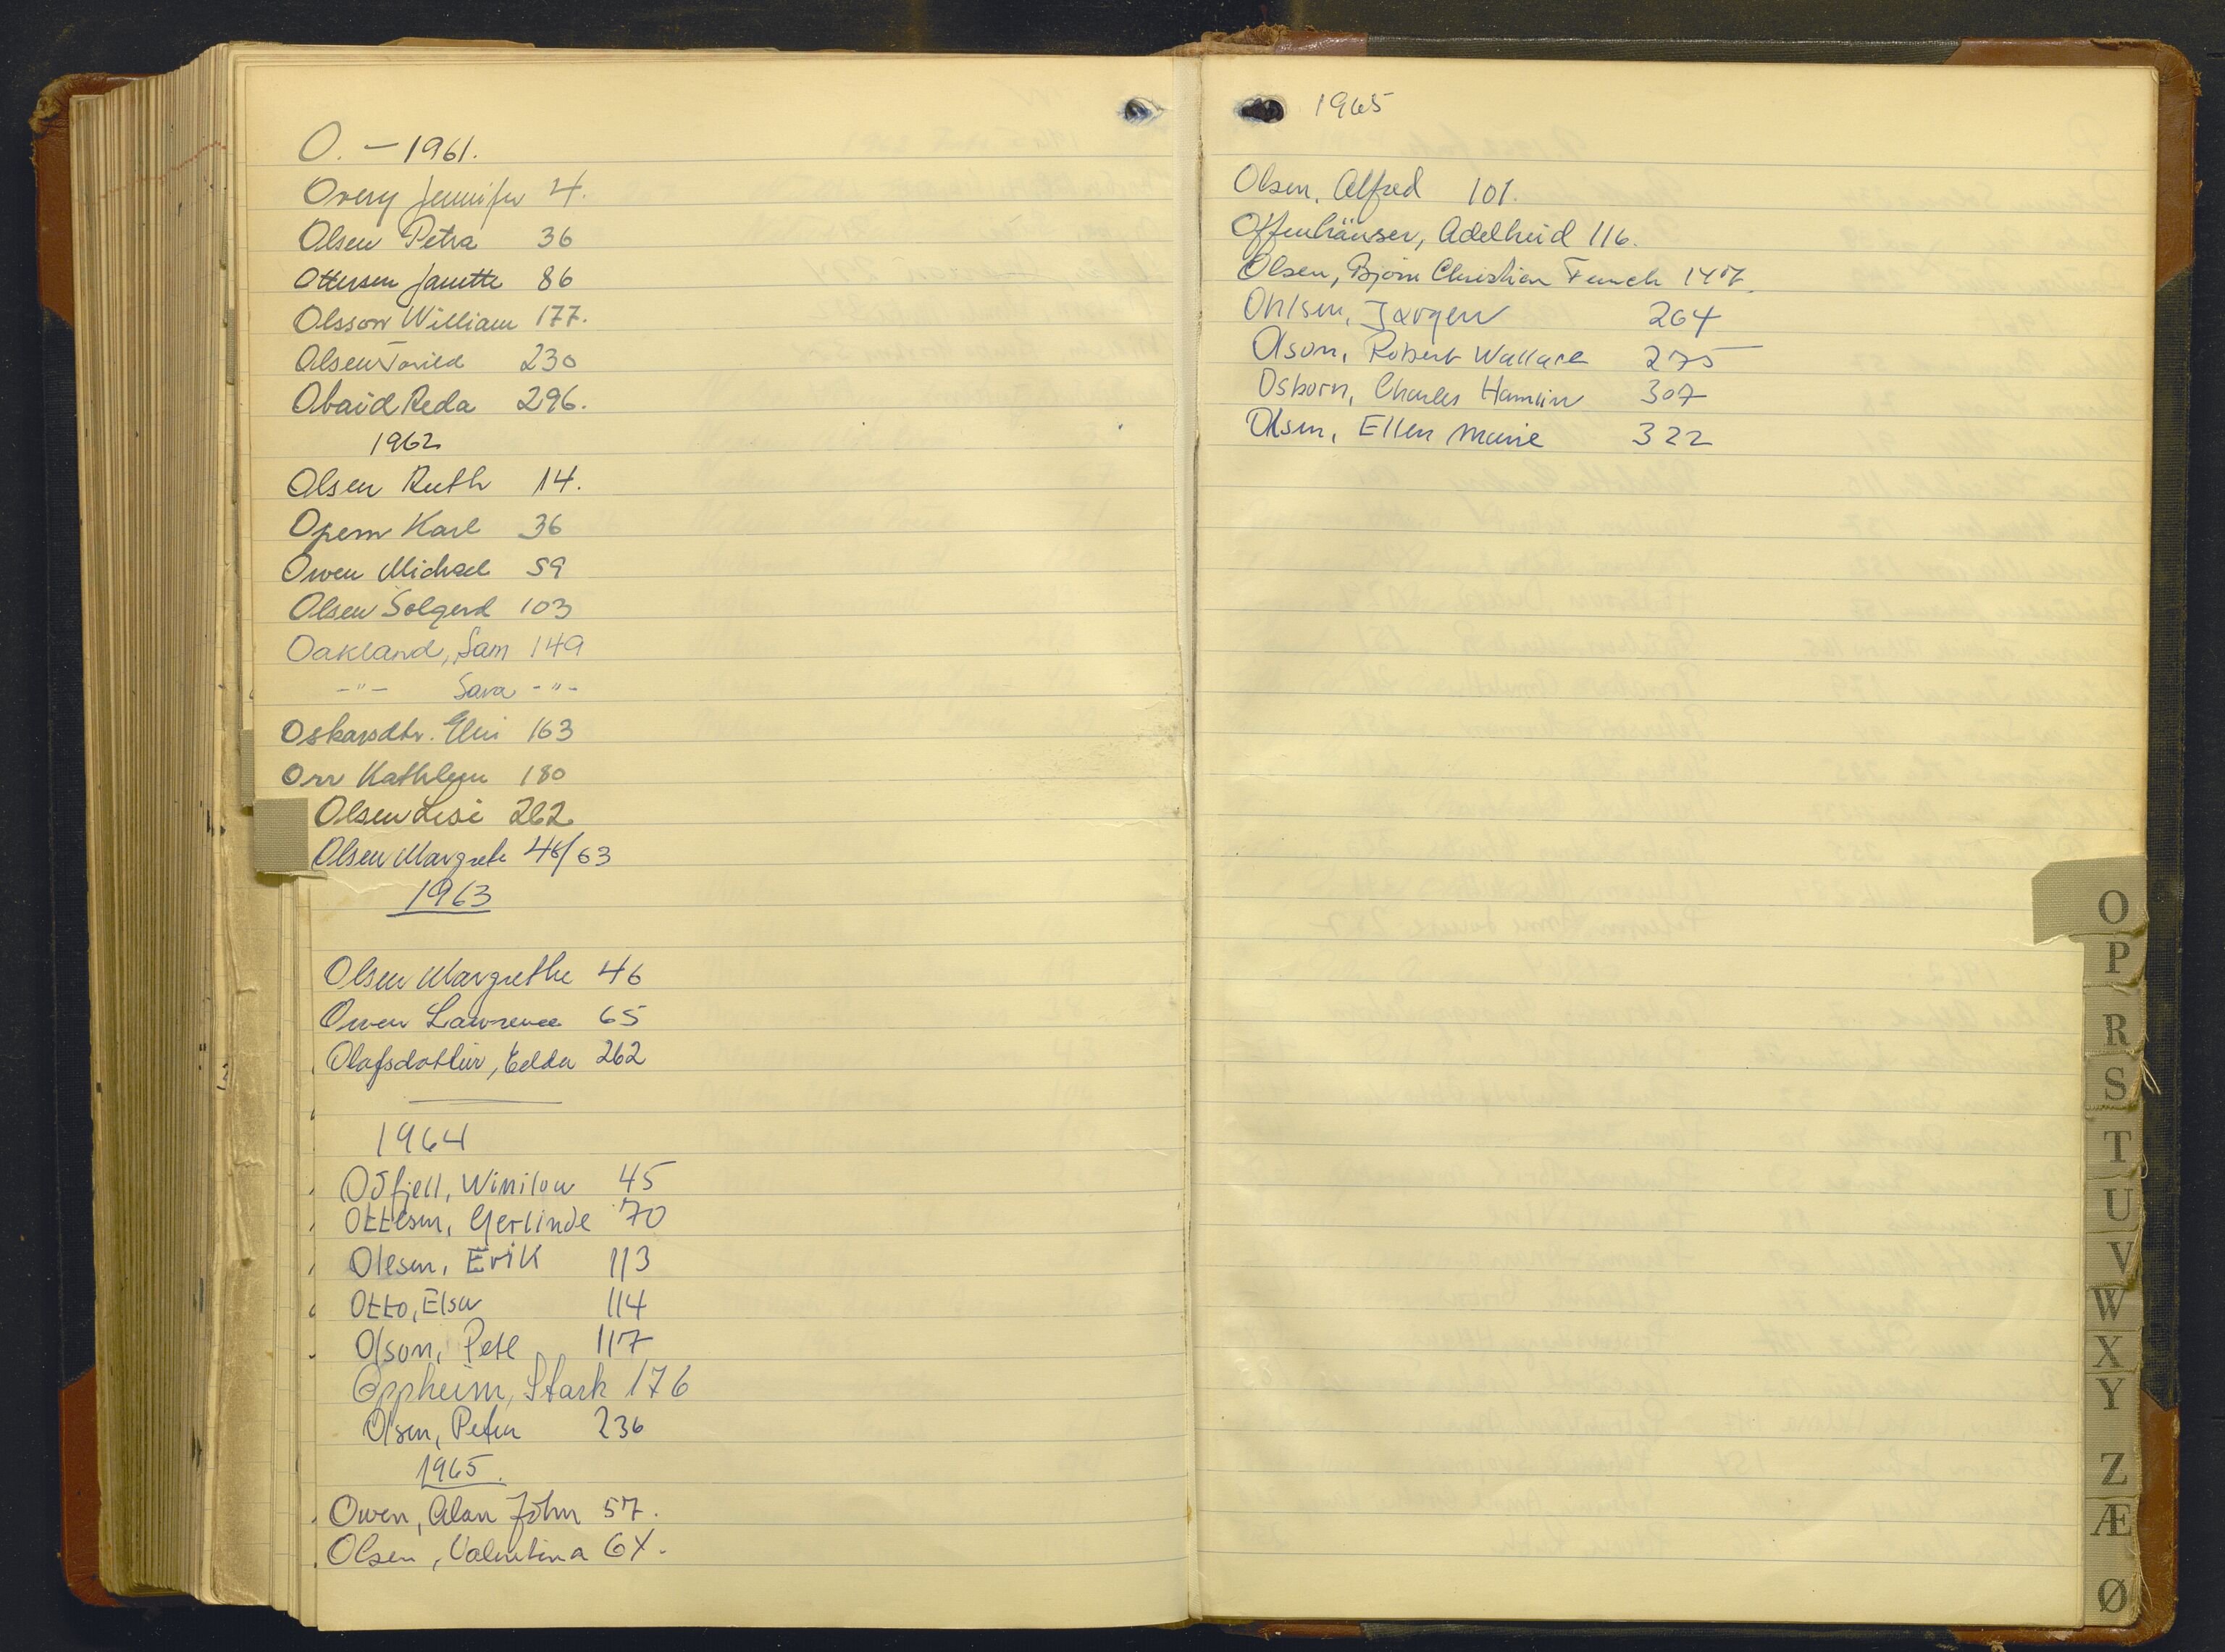 O. - 1961.
Overy Jennifer 4.
Olsen Petra 36
Ottersen Janette 86
Olsson William 177.
Olsen Torild 230
Obaid Reda 296.
1962
Olsen Ruth 14.
Opem Karl 36
Owen Michael 59
Olsen Solgerd 103
Oakland, Sam 149
-"- Sara -"-
Oskarsdtr. Elin 163
Orr Kathleen 180
Olsen Lisi 262
Olsen Margrete 46/63
1963
Olsen Margrethe 46
Owen Lawrence 65
Olafsdottir, Edda 262
1964
Odfjell, Winilow 45
Ottesen, Gerlinde 70
Olesen, Erik 113
Otto, Elsa 114
Olson, Pete 117
Oppheim, Stark 176
Olsen, Peter 236
1965.
Owen, Alan John 57.
Olsen, Valentina 64.
1965
Olsen, Alfred 101.
Offenhäuser, Adelheid 116.
Olsen, Bjørn Christian Funch 147.
Ohlsen, Jørgen 264
Olson, Robert Wallace 275
Osborn, Charles Hamlin 307
Olsen, Ellen Marie 322
O
P
R
S
T
U
V
W
X
Y
Z
Æ
Ø